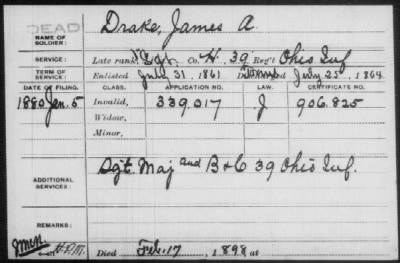 DEAD
NAME OF SOLDIER: Drake, James A.
SERVICE: Late rank, Co. H, 39 Reg't Ohio Inf
TERM OF SERVICE: Enlisted July 31, 1861 Discharged July 25, 1864
DATE OF FILING. CLASS. APPLICATION NO. LAW. CERTIFICATE NO.
1880 Jan. 5 Invalid, 339,017 J 906.825
Widow,
Minor,
ADDITIONAL SERVICES: Sgt. Maj and B & C 39 Ohio Inf.
REMARKS:
Died Feb. 17, 1898 at